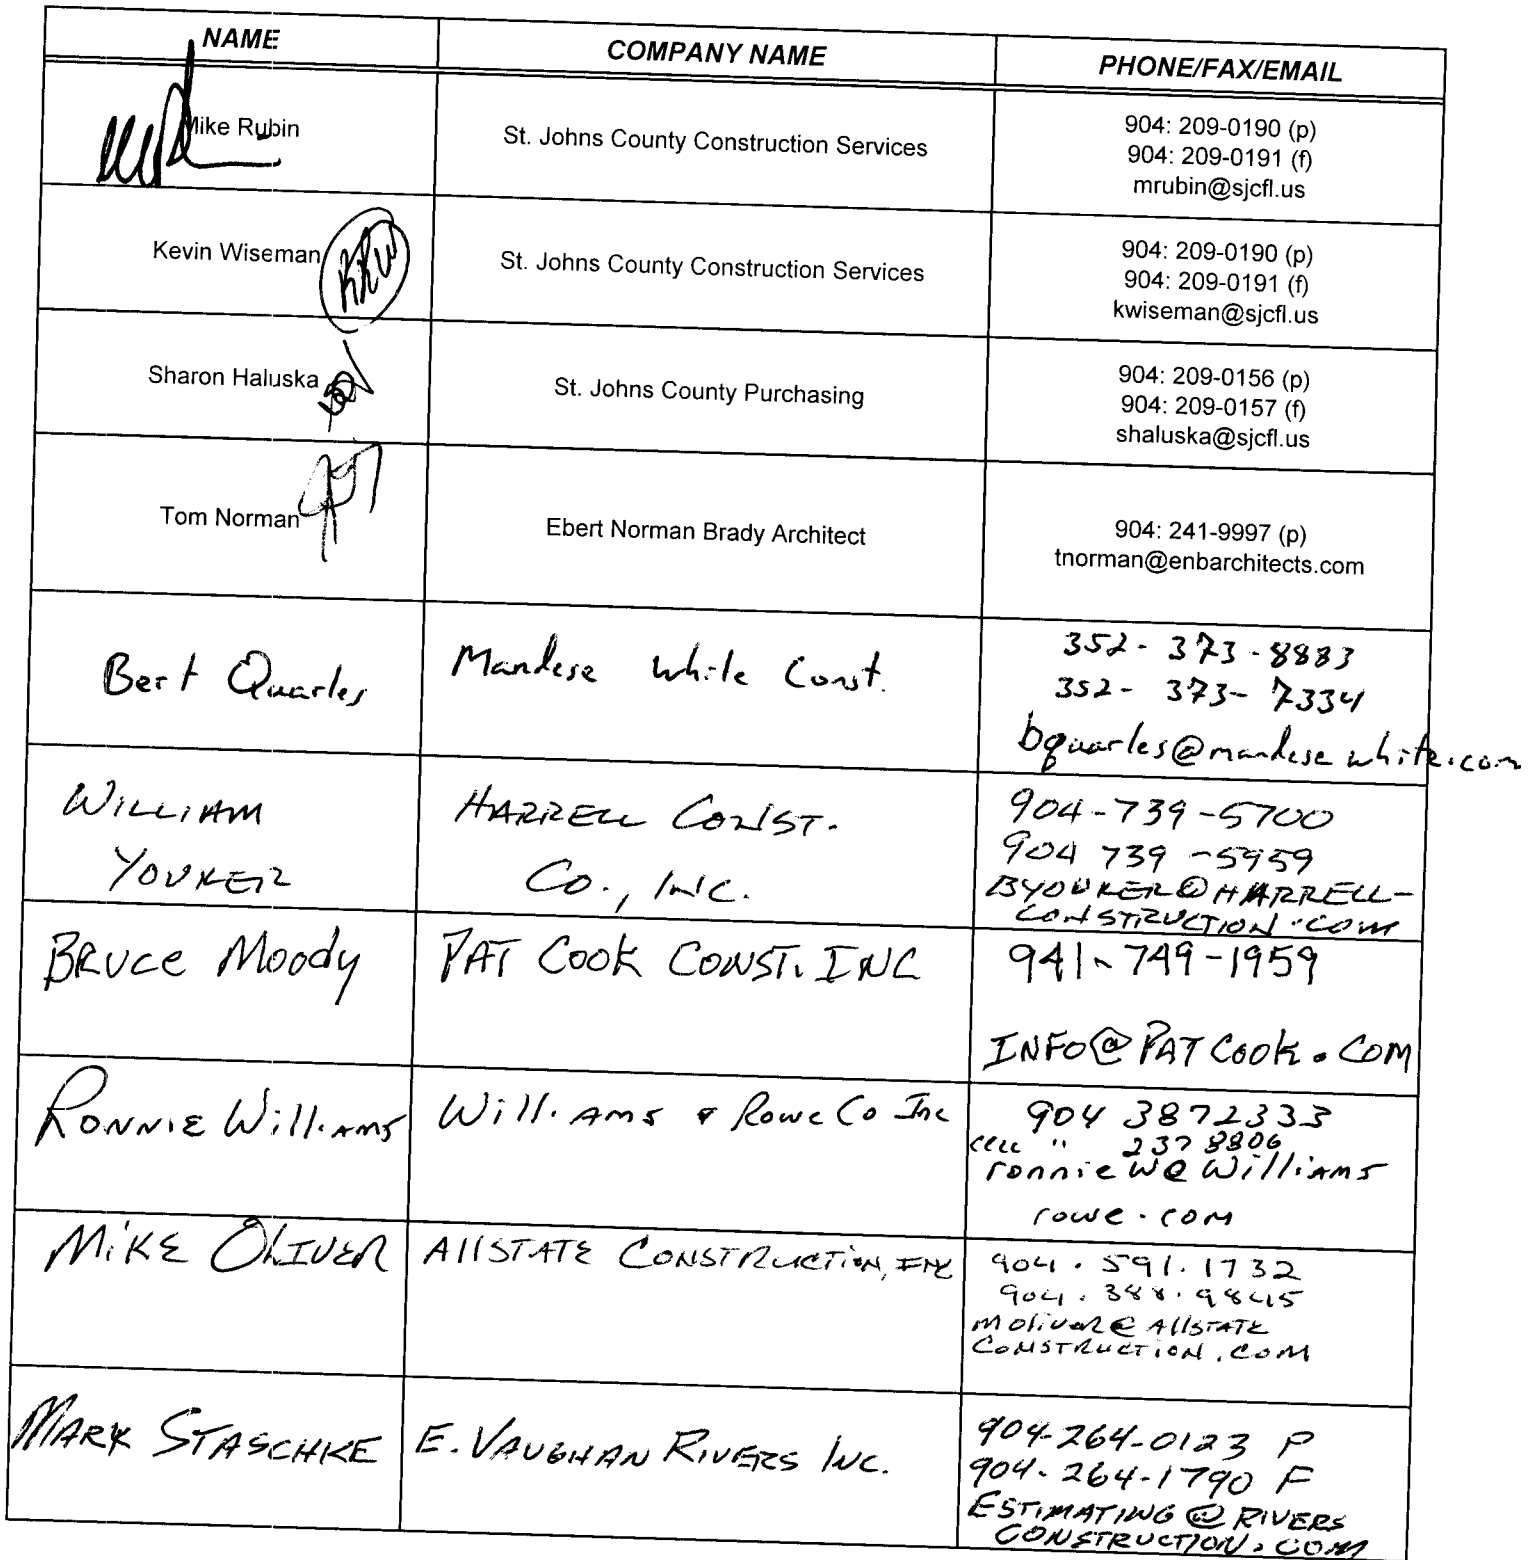 NAME COMPANY NAME PHONE/FAX/EMAIL
Mike Rubin St. Johns County Construction Services 904: 209-0190 (p)
904: 209-0191 (f)
mrubin@sjcfl.us
Kevin Wiseman KKW St. Johns County Construction Services 904: 209-0190 (p)
904: 209-0191 (f)
kwiseman@sjcfl.us
Sharon Haluska St. Johns County Purchasing 904: 209-0156 (p)
904: 209-0157 (f)
shaluska@sjcfl.us
Tom Norman Ebert Norman Brady Architect 904: 241-9997 (p)
tnorman@enbarchitects.com
Bert Quarles Mandese White Const. 352-373-8883
352-373-7334
bquarles@mandesewhite.com
WILLIAM HARRELL CONST. 904-739-5700
YOUKER CO., INC. 904 739-5959
BYOUKER@HARRELL-
CONSTRUCTION.COM
BRUCE MOODY PAT COOK CONST. INC 941-749-1959
INFO@PATCOOK.COM
RONNIE Williams Williams & Rowe Co Inc 904 3872333
cell " 237 8806
ronniew@williams
rowe.com
MIKE OLIVER AllSTATE CONSTRUCTION, INC 904.591.1732
904.388.9845
moliver@AllSTATE
CONSTRUCTION.COM
MARK STASCHKE E. VAUGHAN RIVERS INC. 904-264-0123 P
904-264-1790 F
ESTIMATING@RIVERS
CONSTRUCTION.COM